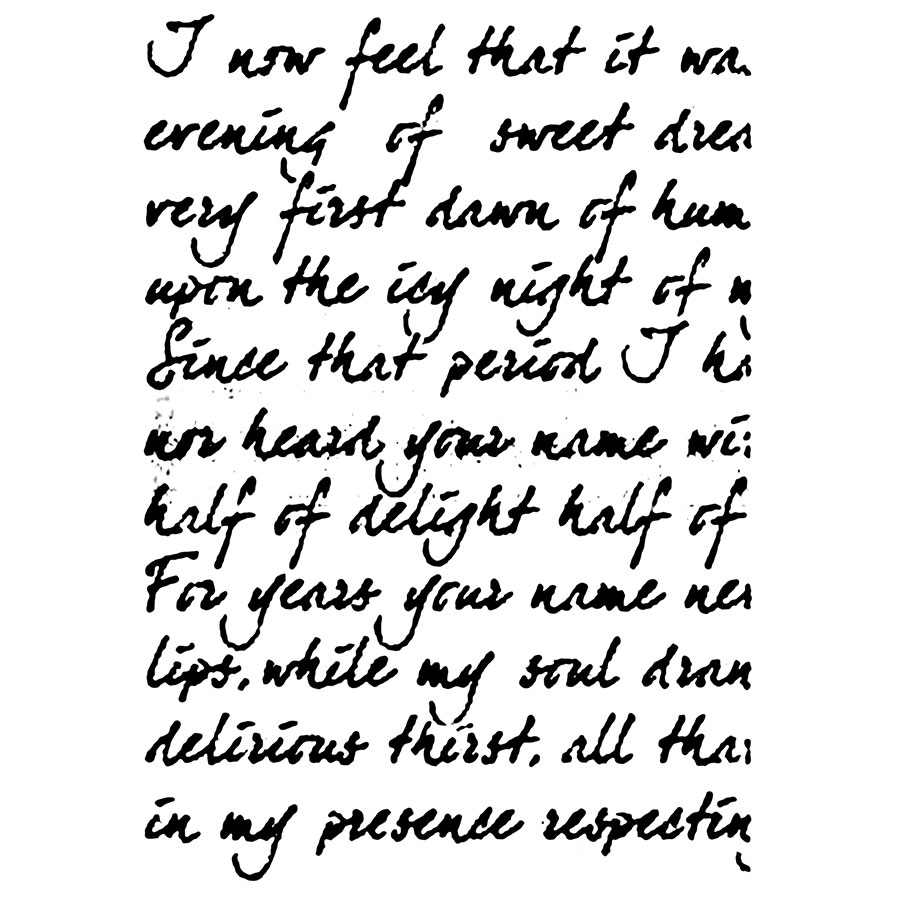 I now feel that it wa
evening of sweet drea
very first dawn of hum
upon the icy night of
Since that period I ha
nor heard your name wi
half of delight half of
For years your name nev
lips, while my soul dran
delirious thirst, all tha
in my presence respectin